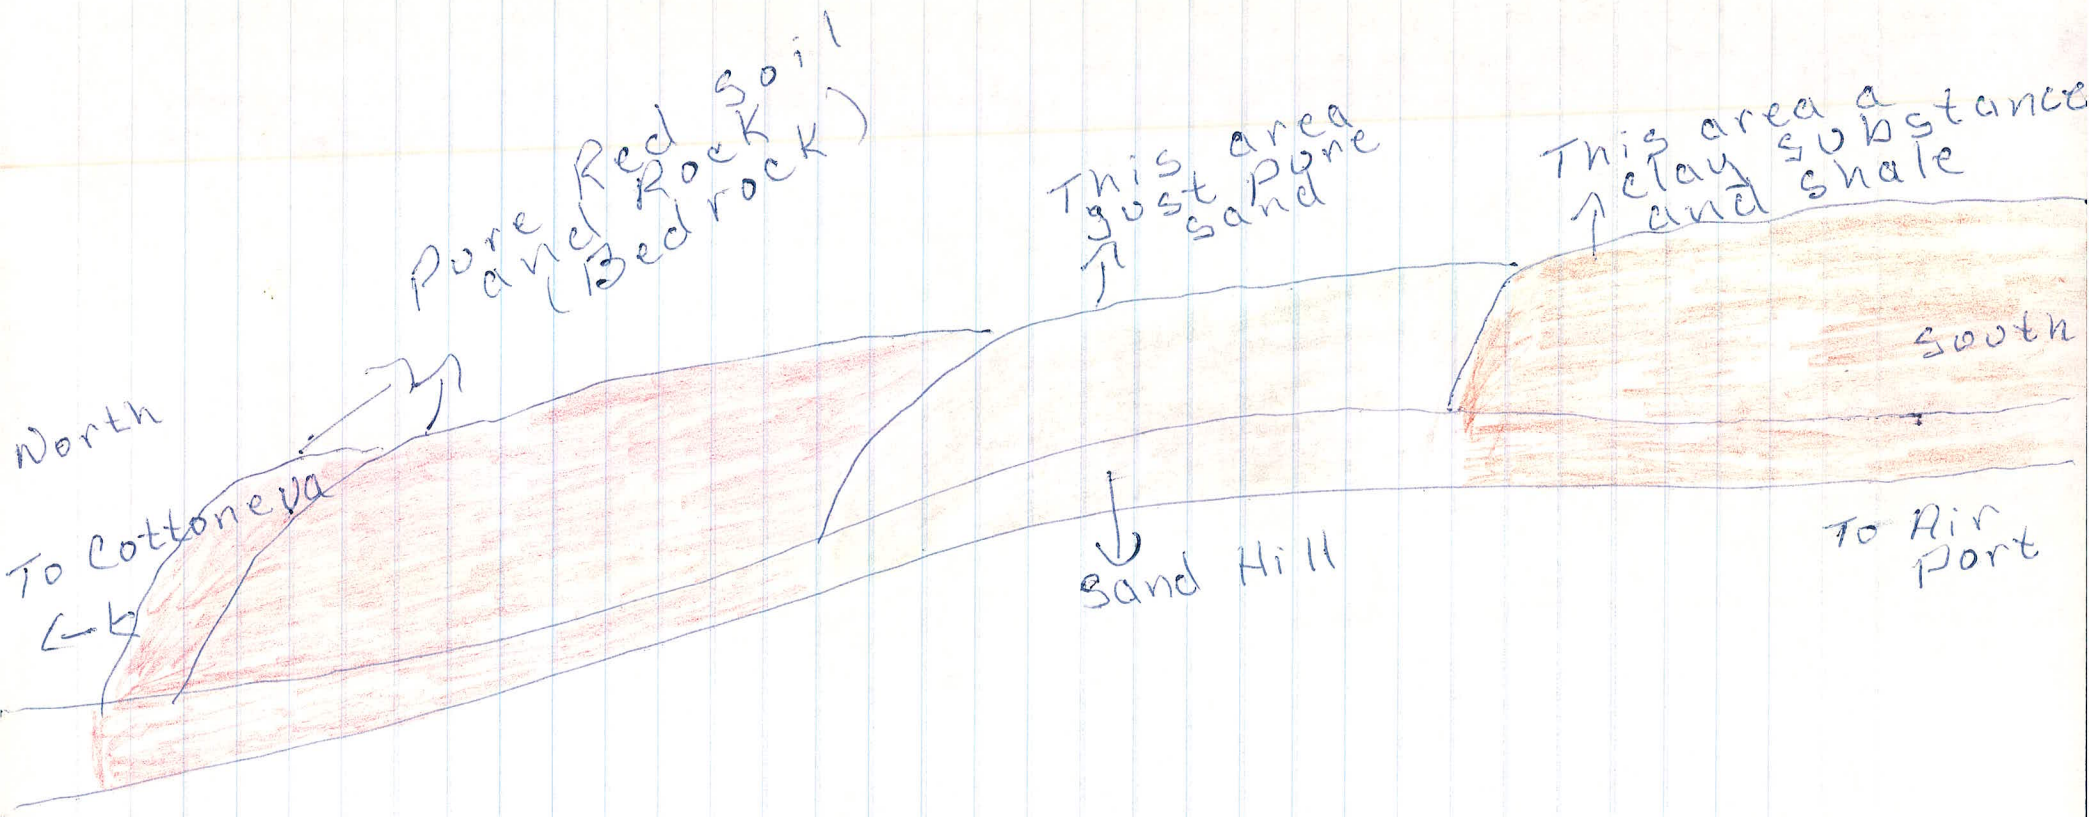 Pure Red Soil
and Red Rock
(Bedrock)
This area
just pure
sand
This area a
clay substance
and shale
North
South
To Cottoneva
Sand Hill
To Air
Port